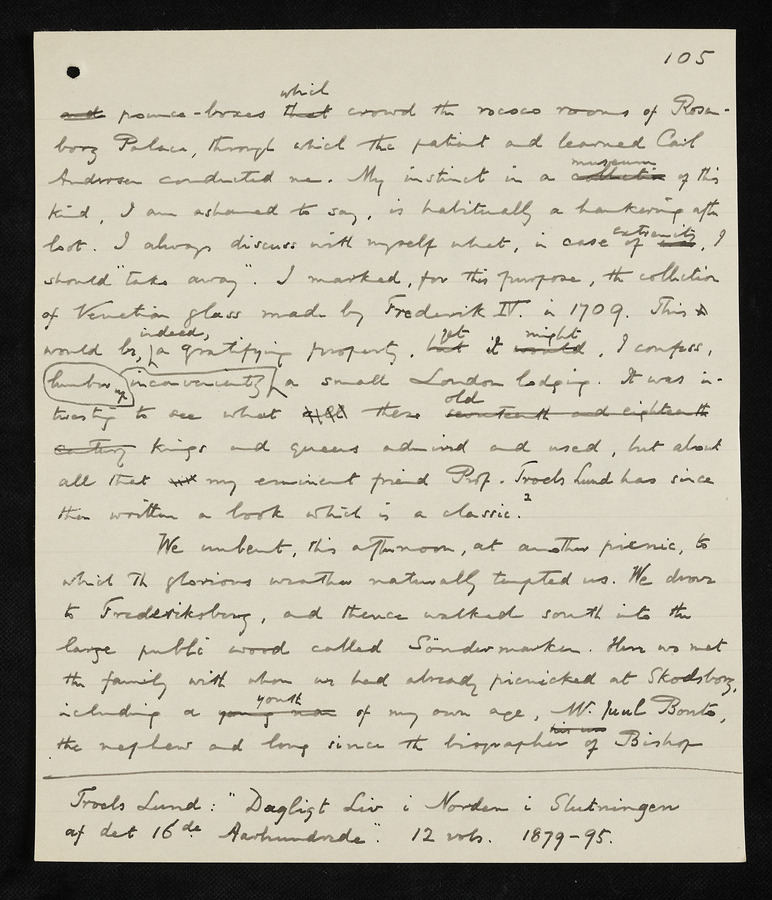 105
which
and pounce-boxes that crowd the rococo rooms of Rosen-
borg Palace, through which the patient and learned Carl
museum
Andersen conducted me. My instinct in a collection of this
kind, I am ashamed to say, is habitually a hankering after
extremity
loot. I always discuss with myself what, in case of, I
should "take away". I marked, for this purpose, the collection
of Venetian glass made by Frederik IV. in 1709. This
indeed, yet might
would be, a gratifying property, but it would, I confess,
lumber up inconveniently a small London lodging. It was in-
old
teresting to see what these seventeenth and eighteenth
century kings and queens admired and used, but about
all that my eminent friend Prof. Troels Lund has since
then written a book which is a classic.²
We unbent, this afternoon, at another picnic, to
which the glorious weather naturally tempted us. We drove
to Frederiksberg, and thence walked south into the
large public wood called Söndermarken. Here we met
the family with whom we had already picnicked at Skodsborg,
youth
including a young man of my own age, Mr. Juul Bonto,
the nephew and long since the biographer of Bishop
Troels Lund: "Dagligt Liv i Norden i Slutningen
af det 16de Aarhundrede". 12 vols. 1879-95.